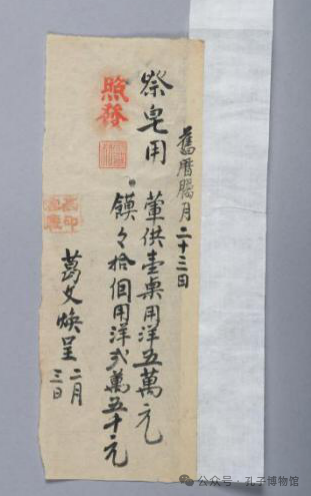 舊曆臘月二十三日
祭皂用
葷供壹桌用洋五萬元
饃々拾個用洋弍萬五千元
照發
葛文焕呈
二月
三日
公众号·孔子博物馆